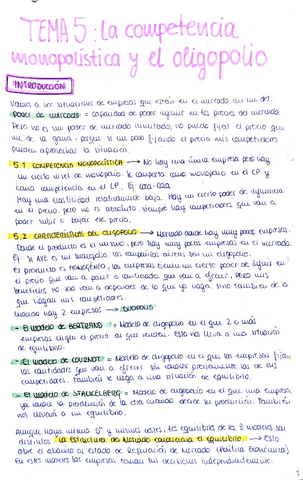 TEMA 5: La competencia
monopolística y el oligopolio
INTRODUCCIÓN
Vamos a ver situaciones de empresas que están en el mercado
Poder de mercado = capacidad de poder influir en los precios del mercado.
Pero no es un poder de mercado ilimitado, no puedo fijar el precio que
me de la gana, porque si me paso fijando el precio mis competidores
pueden aprovechar la situación.
5.1 COMPETENCIA MONOPOLÍSTICA → No hay una única empresa pero hay
un cierto nivel de monopolio. Se comporta como monopolio en el CP y
como competencia en el LP. Ej: coca-cola.
Hay una elasticidad relativamente baja. Hay un cierto poder de influencia
en el precio, pero no es absoluto, siempre hay competidores que van a
poder subir o bajar ese precio.
5.2 CARACTERÍSTICAS DEL OLIGOPOLIO → Mercado donde hay muy pocas empresas.
Donde el producto es el mismo, pero hay muy pocas empresas en el mercado.
Ej: no es un monopolio, las compañías aéreas son un oligopolio.
El producto es HOMOGÉNEO, las empresas tienen un cierto poder de influir en
el precio que van a poner o cantidades que van a ofrecer, pero mis
beneficios no solo van a depender de lo que yo haga, sino también de lo
que hagan mis competidores.
Cuando hay 2 empresas → DUOPOLIO
- El modelo de BERTRAND: = Modelo de oligopolio en el que 2 o más
empresas eligen el precio al que venden. Esto nos lleva a una situación
de equilibrio.
- El modelo de COURNOT: = Modelo de oligopolio en el que las empresas fijan
las cantidades que van a ofrecer sin conocer previamente las de mis
competidores. También se llega a una situación de equilibrio.
- El modelo de STACKELBERG: = Modelo de oligopolio en el que una empresa
ya conoce la producción de la otra cuando decide su producción. También
nos llevará a un equilibrio.
Aunque haya menos y menores costes, los equilibrios de los 3 modelos son
distintos. "La estructura del mercado condiciona el equilibrio. → Esto
abre el camino al estado de Regulación de Mercado (Política Económica).
En estos modelos las empresas toman sus decisiones independientemente.
1